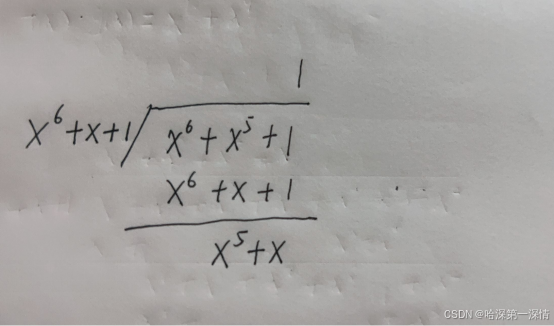 1
x⁶+x+1 x⁶+x⁵+1
x⁶+x+1
x⁵+x
CSDN @哈深第一深情